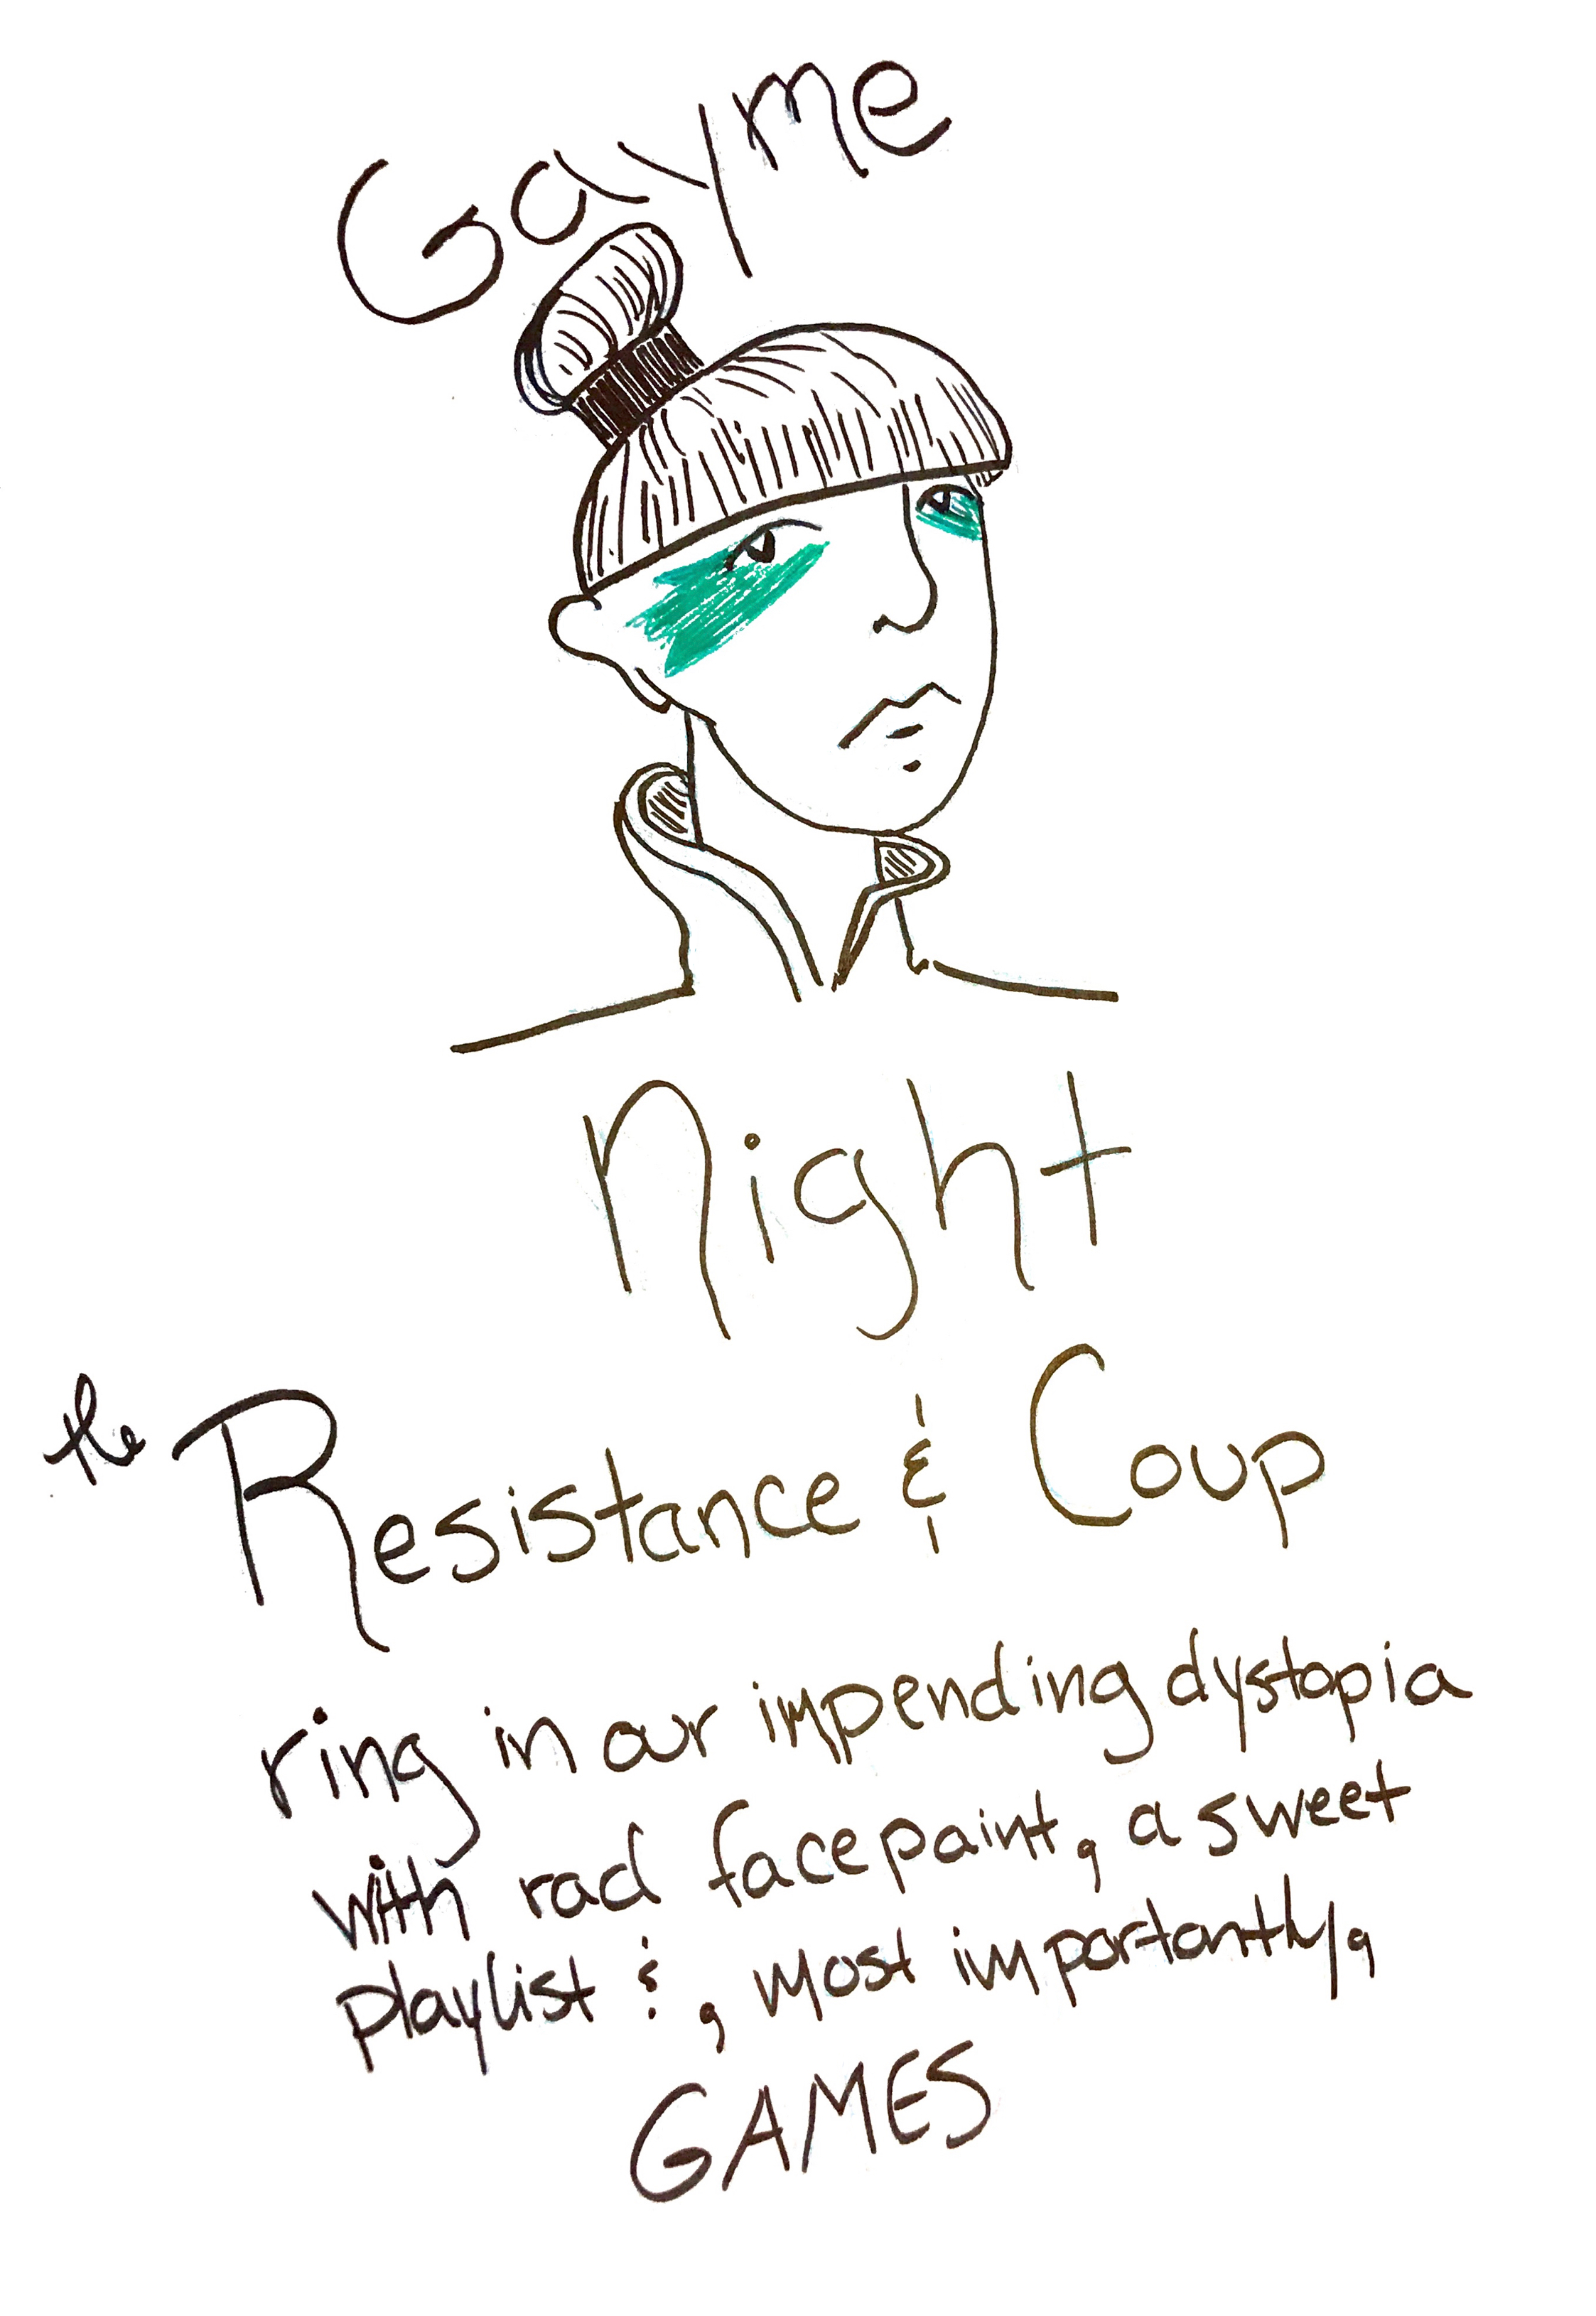 Gayme
Night
the Resistance & Coup
ring in our impending dystopia
with rad facepaint, a sweet
playlist &, most importantly,
GAMES